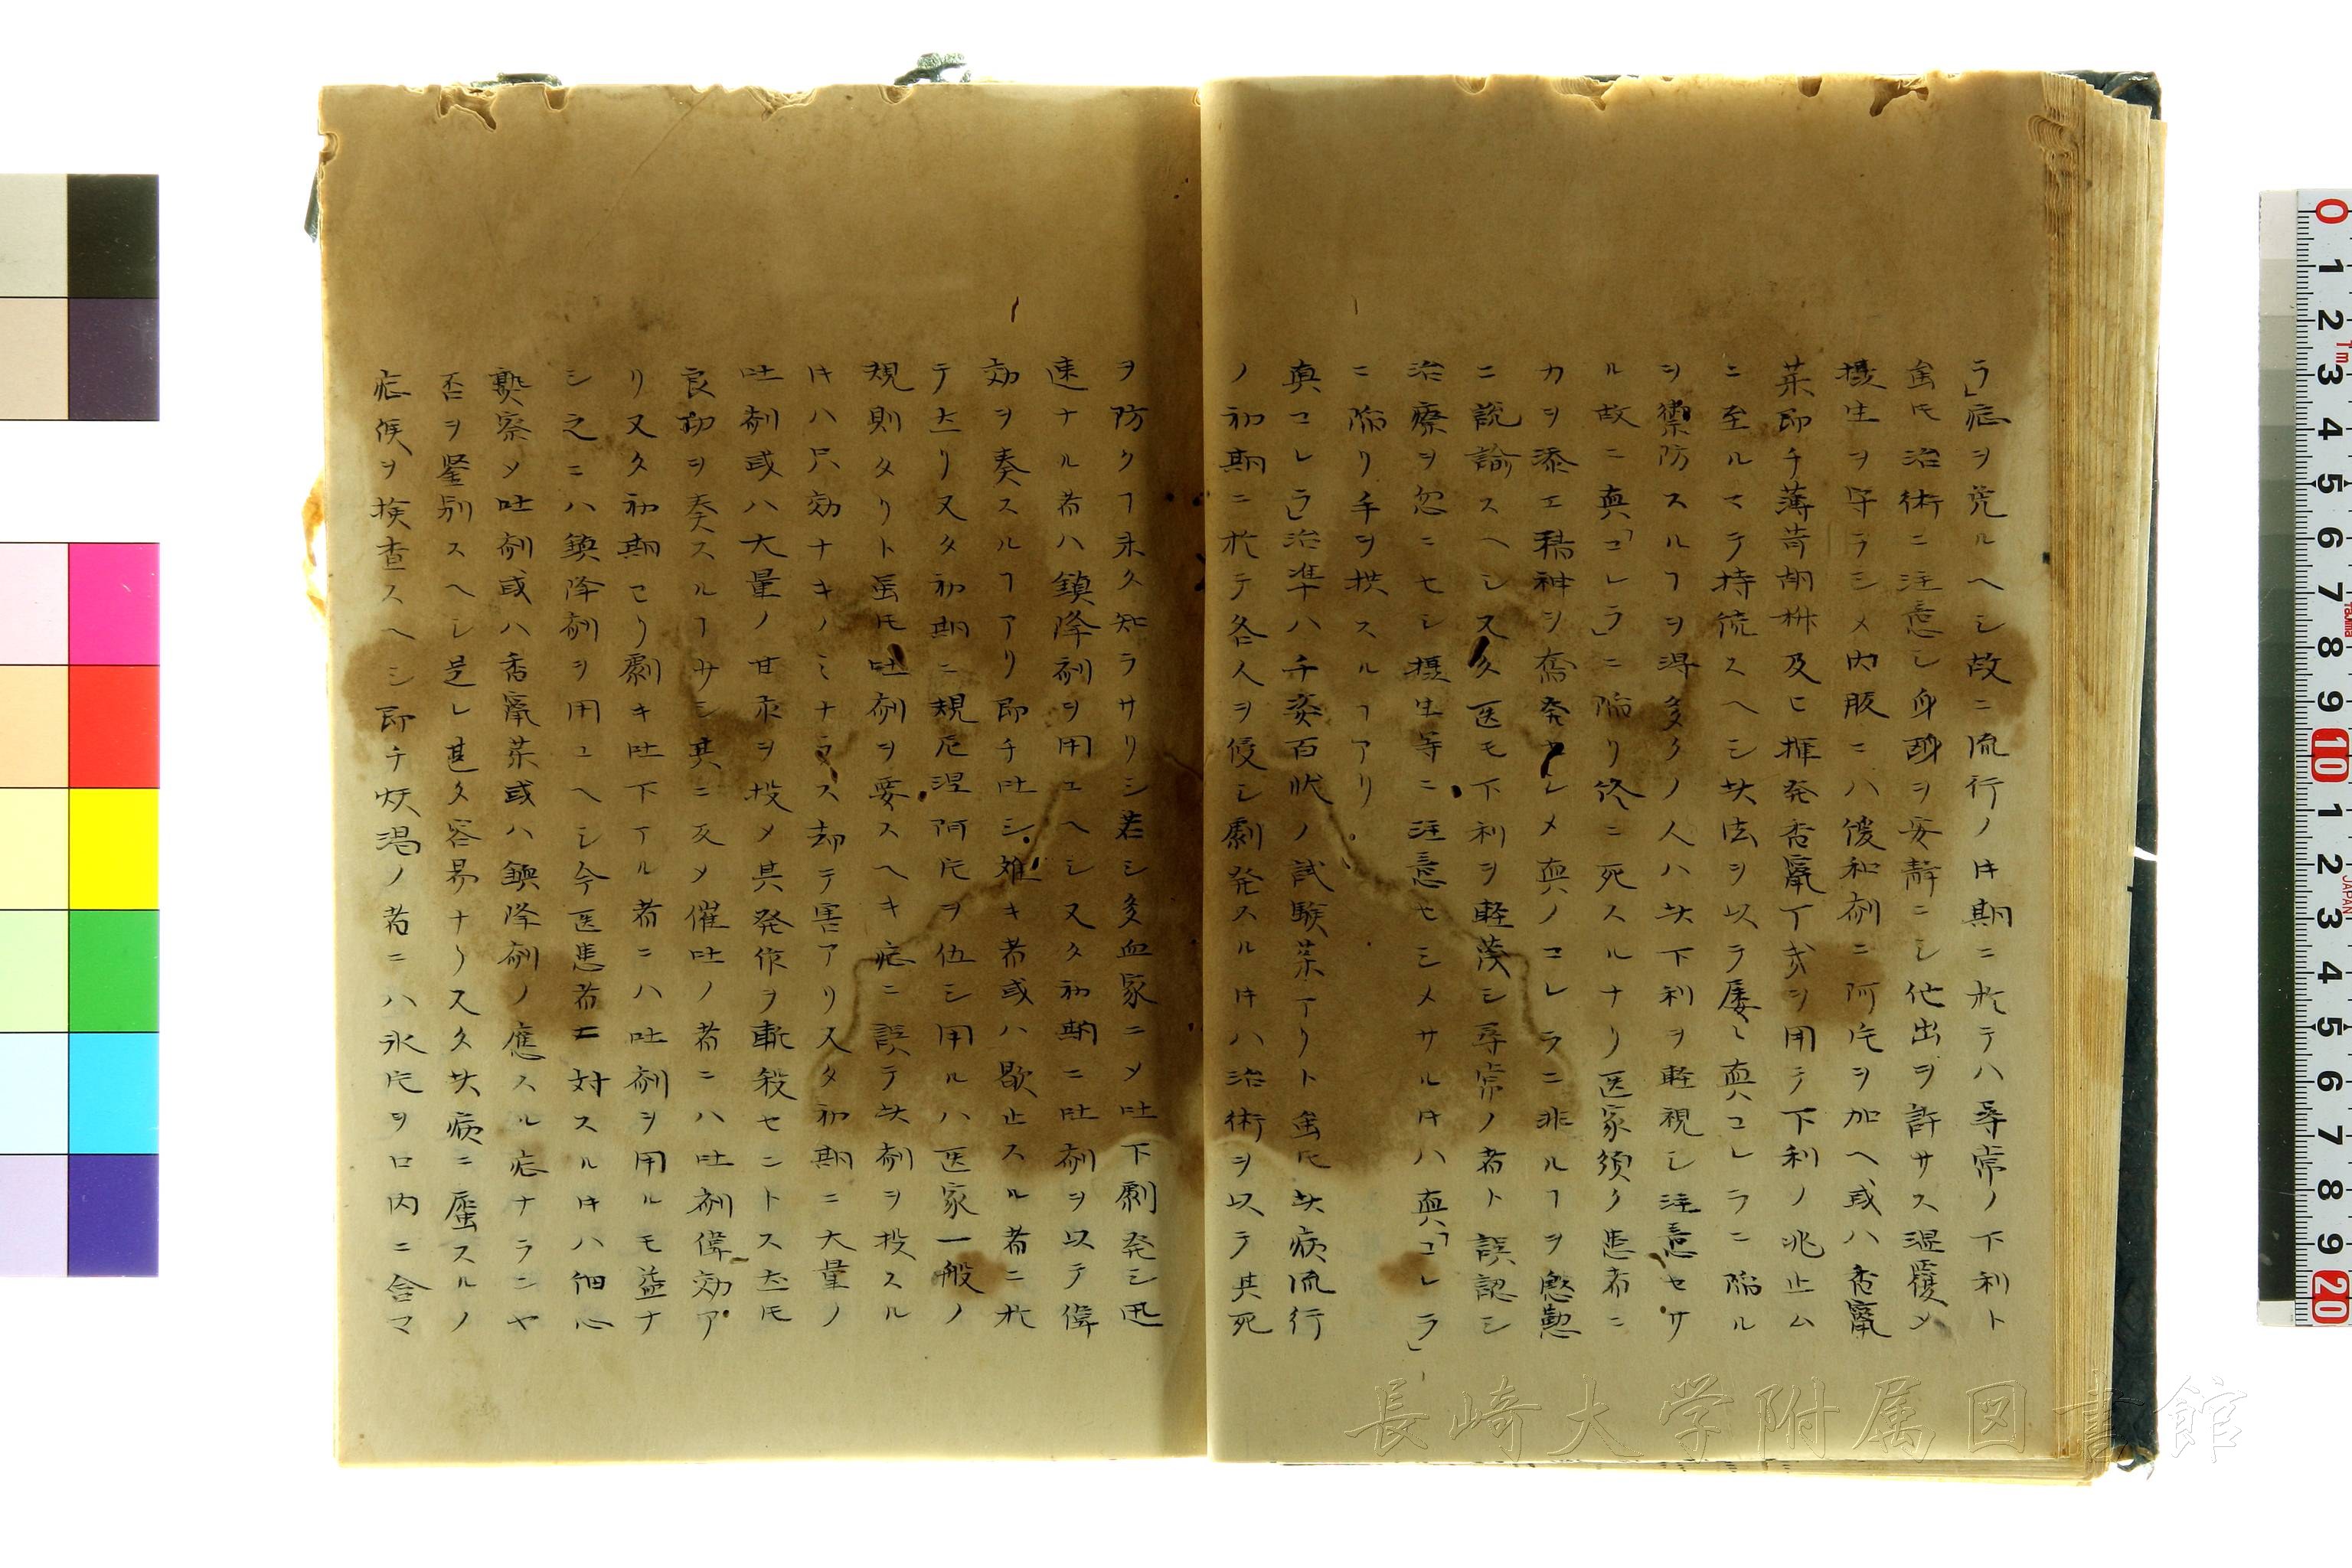 ラ」症ヲ免ルヘシ故ニ流行ノ𪜈期ニ於テハ尋常ノ下利ト
虽𪜈治術ニ注意シ身酮ヲ安静ニシ他出ヲ許サス温覆〆
摂生ヲ守ラシメ内服ニハ優和剤ニ阿片ヲ加ヘ或ハ香竄
薬即チ薄荷胡椒及ヒ揮発香竄丁幾ヲ用テ下利ノ兆止ム
ニ至ルマテ持続スヘシ此法ヲ以テ屡〻真コレラニ陥ル
ヲ禦防スルヿヲ得多クノ人ハ此下利ヲ軽視シ注意セサ
ル故ニ真「コレラ」ニ陥リ終ニ死スルナリ医家須ク患者ニ
力ヲ添エ精神ヲ奮発セシメ真ノコレラニ非ルヿヲ慇懃
ニ説諭スヘシ又タ医モ下利ヲ軽蔑シ尋常ノ者ト誤認シ
治療ヲ忽ニセシ摂生等ニ注意セシメサル𪜈ハ真「コレラ」
ニ陥リ手ヲ拱スルヿアリ
真コレラ」治準ハ千姿百状ノ試験薬アリト虽𪜈此病流行
ノ初期ニ於テ各人ヲ侵シ劇発スル𪜈ハ治術ヲ以テ其死
ヲ防クヿ未タ知ラサリシ若シ多血家ニ〆吐下劇発シ迅
速ナル者ハ鎮降剤ヲ用ユヘシ又タ初期ニ吐剤ヲ以テ偉
効ヲ奏スルヿアリ即チ吐シ難キ者或ハ歇止スル者ニ於
テ然リ又タ初期ニ規尼涅阿片ヲ伍シ用ルハ医家一般ノ
規則タリト虽𪜈吐剤ヲ要スヘキ症ニ誤テ此剤ヲ投スル
𪜈ハ只効ナキノミナラス却テ害アリ又タ初期ニ大量ノ
吐剤或ハ大量ノ甘汞ヲ投〆其発作ヲ斬殺セントス然𪜈
良効ヲ奏スルヿサシ其ニ反〆催吐ノ者ニハ吐剤偉効ア
リ又タ初期ヨリ劇キ吐下アル者ニハ吐剤ヲ用ルモ益ナ
シ之ニハ鎮降剤ヲ用ユヘシ今医患者ニ対スル𪜈ハ細心
熟察〆吐剤或ハ香竄薬或ハ鎮降剤ノ應スル症ナランヤ
否ヲ鑒別スヘシ是レ甚タ容易ナラス又タ此病ニ罹スルノ
症候ヲ検査スヘシ即チ煩渇ノ者ニハ氷片ヲ口内ニ含マ
長崎大学附属図書館